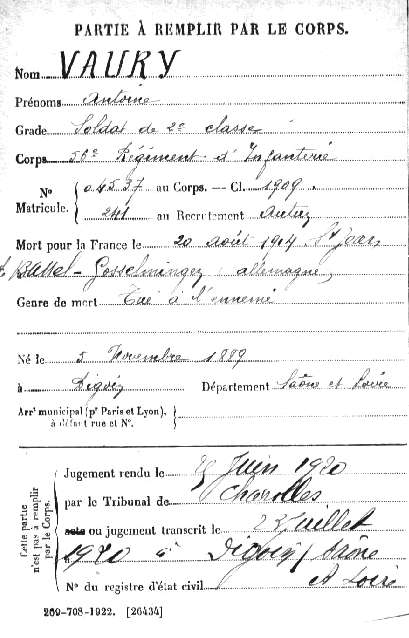 PARTIE À REMPLIR PAR LE CORPS.
Nom VAURY
Prénoms Antoine
Grade Soldat de 2e classe
Corps 56e Régiment d'Infanterie
N° Matricule. { 04537 au Corps. — Cl. 1909
241 au Recrutement Autun
Mort pour la France le 20 août 1914 St Jean
Bassel - Gosselmingez allemagne
Genre de mort Tué à l'ennemi
Né le 5 Novembre 1889
à Digoin Département Saône et Loire
Arrt municipal (pr Paris et Lyon), à défaut rue et N°.
Cette partie n'est pas à remplir par le Corps.
Jugement rendu le Juin 1920
par le Tribunal de Charolles
acte ou jugement transcrit le 2 Juillet
1920 à Digoin (Saône
et Loire
N° du registre d'état civil
269-708-1922. [26434]